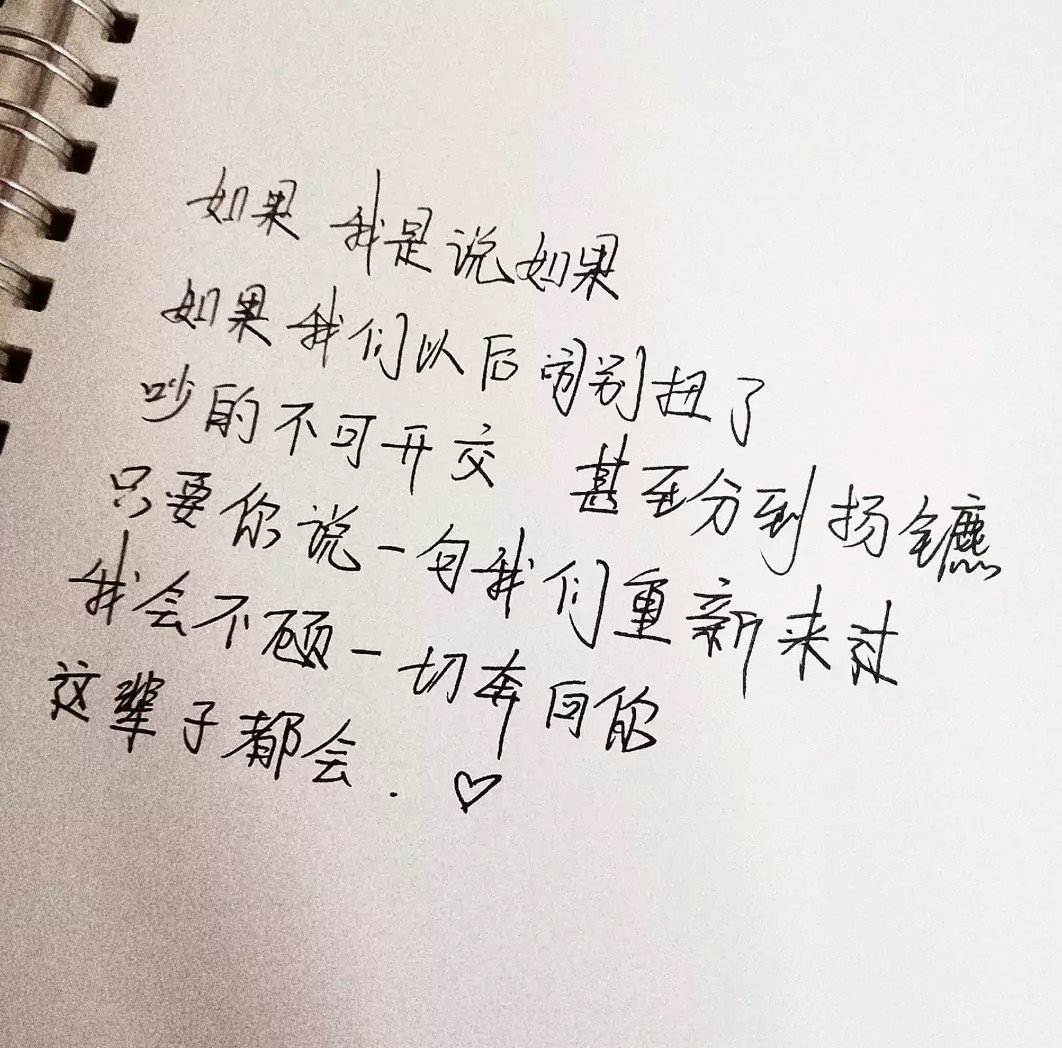 如果 我是说如果
如果我们以后闹别扭了
吵的不可开交 甚至分到扬镳
只要你说一句我们重新来过
我会不顾一切奔向你
这辈子都会.♡